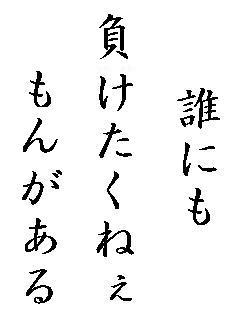 誰にも
負けたくねぇ
もんがある